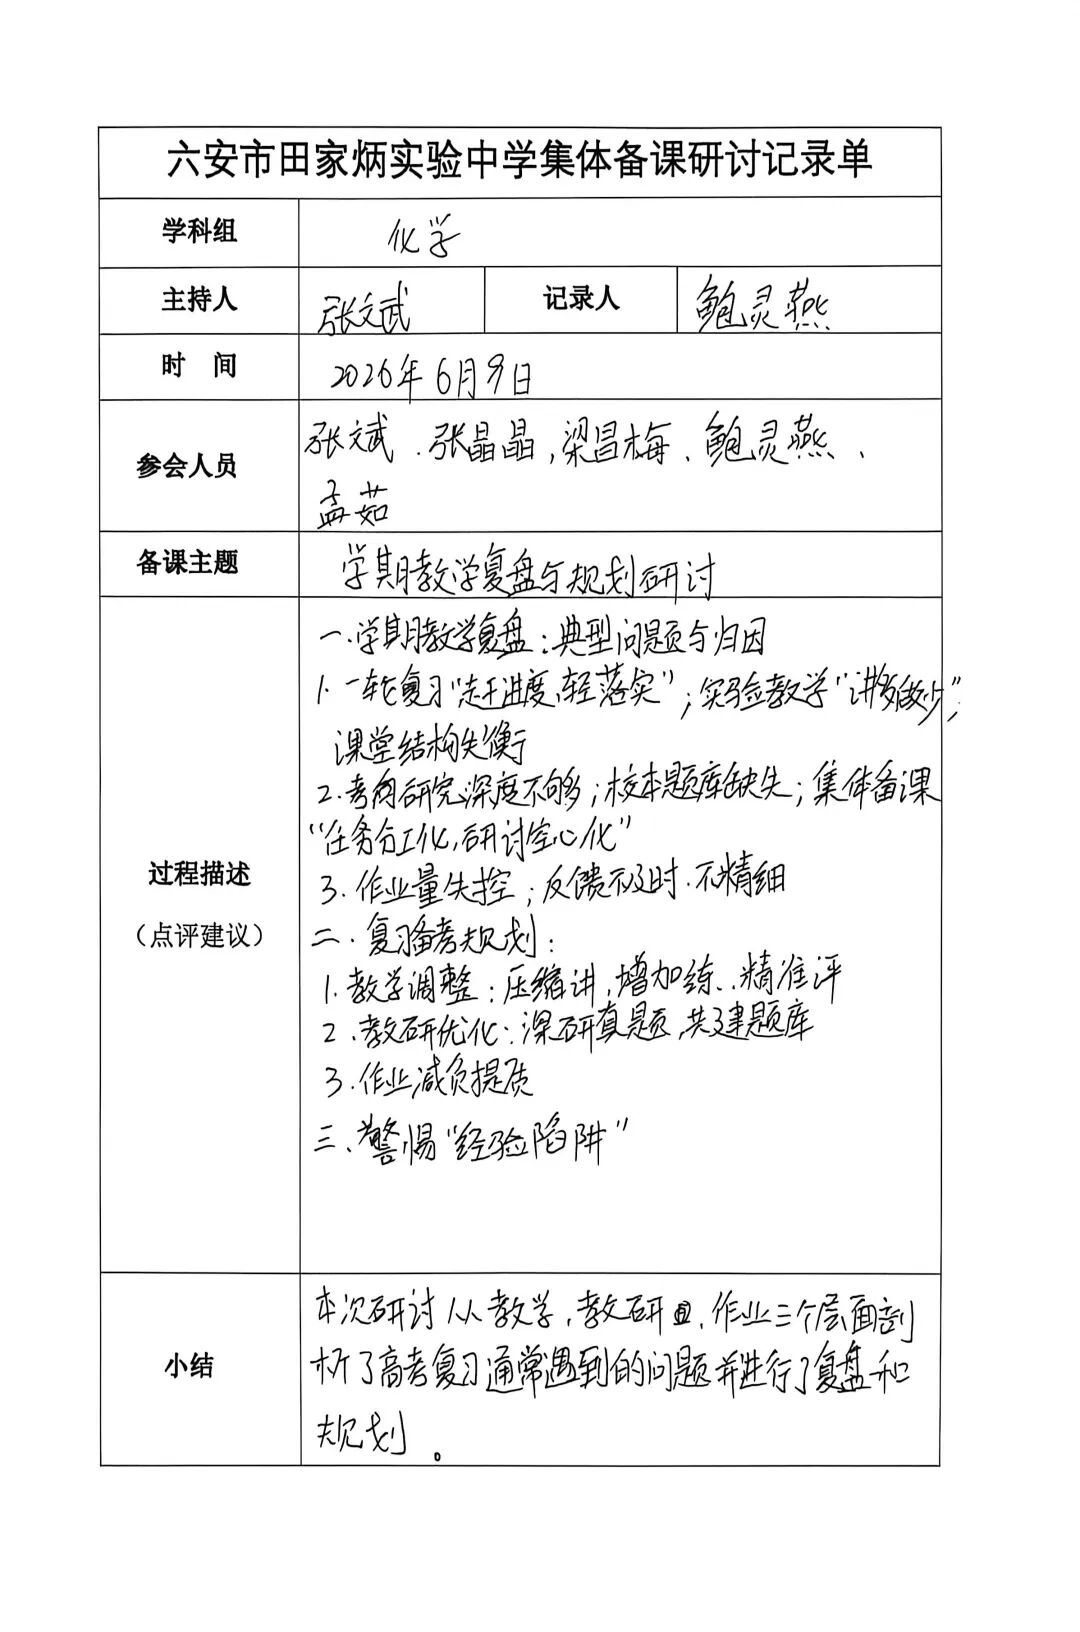 六安市田家炳实验中学集体备课研讨记录单
学科组 化学
主持人 张文武 记录人 鲍灵燕
时 间 2026年6月9日
参会人员 张文武、张晶晶,梁昌梅、鲍灵燕、
孟茹
备课主题 学期教学复盘与规划研讨
过程描述
(点评建议)
一.学期教学复盘:典型问题与归因
1.一轮复习“赶进度,轻落实”;实验教学“讲多做少”;
课堂结构失衡
2.考向研究深度不够;校本题库缺失;集体备课
“任务分工化,研讨空心化”
3.作业量失控;反馈不及时.不精细
二.复习备考规划:
1.教学调整:压缩讲,增加练、精准评
2.教研优化:深研真题,共建题库
3.作业减负提质
三、警惕“经验陷阱”
小结
本次研讨从教学,教研、作业三个层面剖
析了高考复习通常遇到的问题并进行了复盘和
规划。